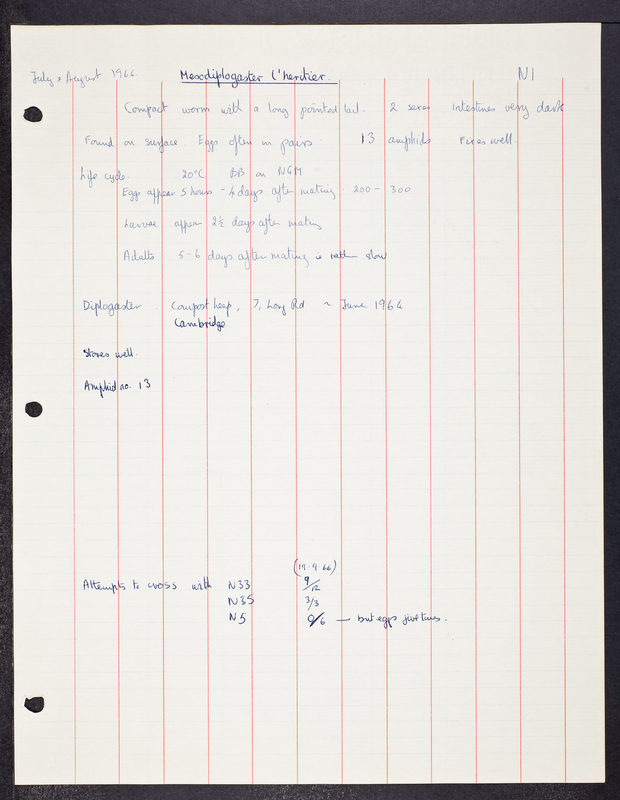 July & August 1966. Mesodiplogaster l'heritier. N1
Compact worm with a long pointed tail. 2 sexes Intestines very dark
Found on surface. Eggs often in pairs 13 amphids Fixes well.
Life cycle. 20°C BB on NGM
Eggs appear 5 hours - 4 days after mating. 200 - 300
Larvae appear 2½ days after mating
Adults 5-6 days after mating is rather slow
Diplogaster Compost heap, 7, Long Rd ~ June 1964
Cambridge
Stores well.
Amphid no. 13
(19.9.66)
Attempts to cross with N33 9/12
N35 3/3
N5 0/6 — but eggs five times.